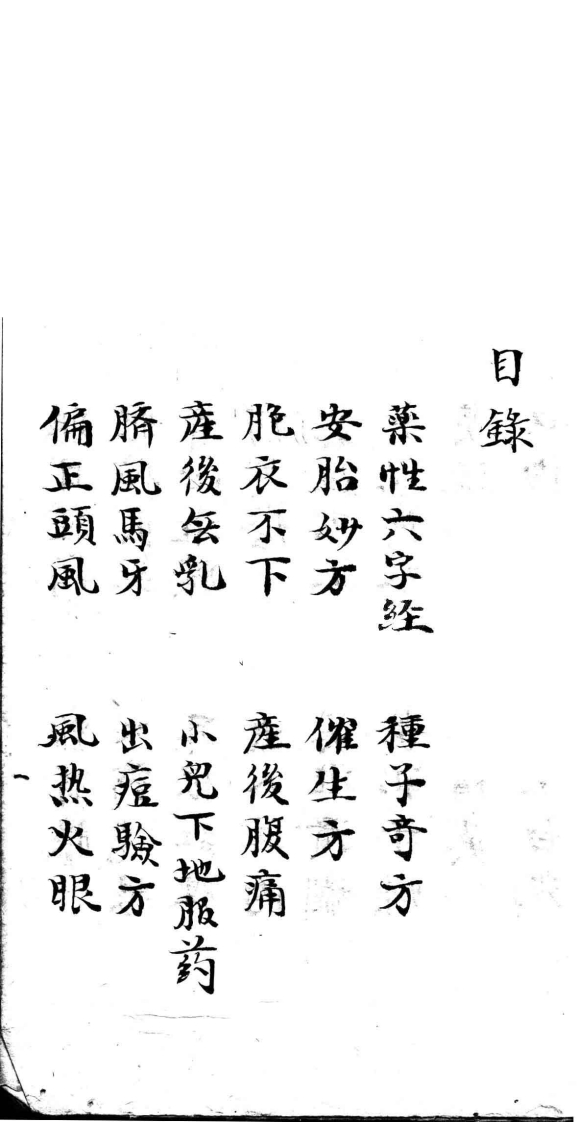 目錄
藥性六字經 種子奇方
安胎妙方 催生方
胞衣不下 產後腹痛
產後無乳 小兒下地服药
臍風馬牙 出痘驗方
偏正頭風 風热火眼